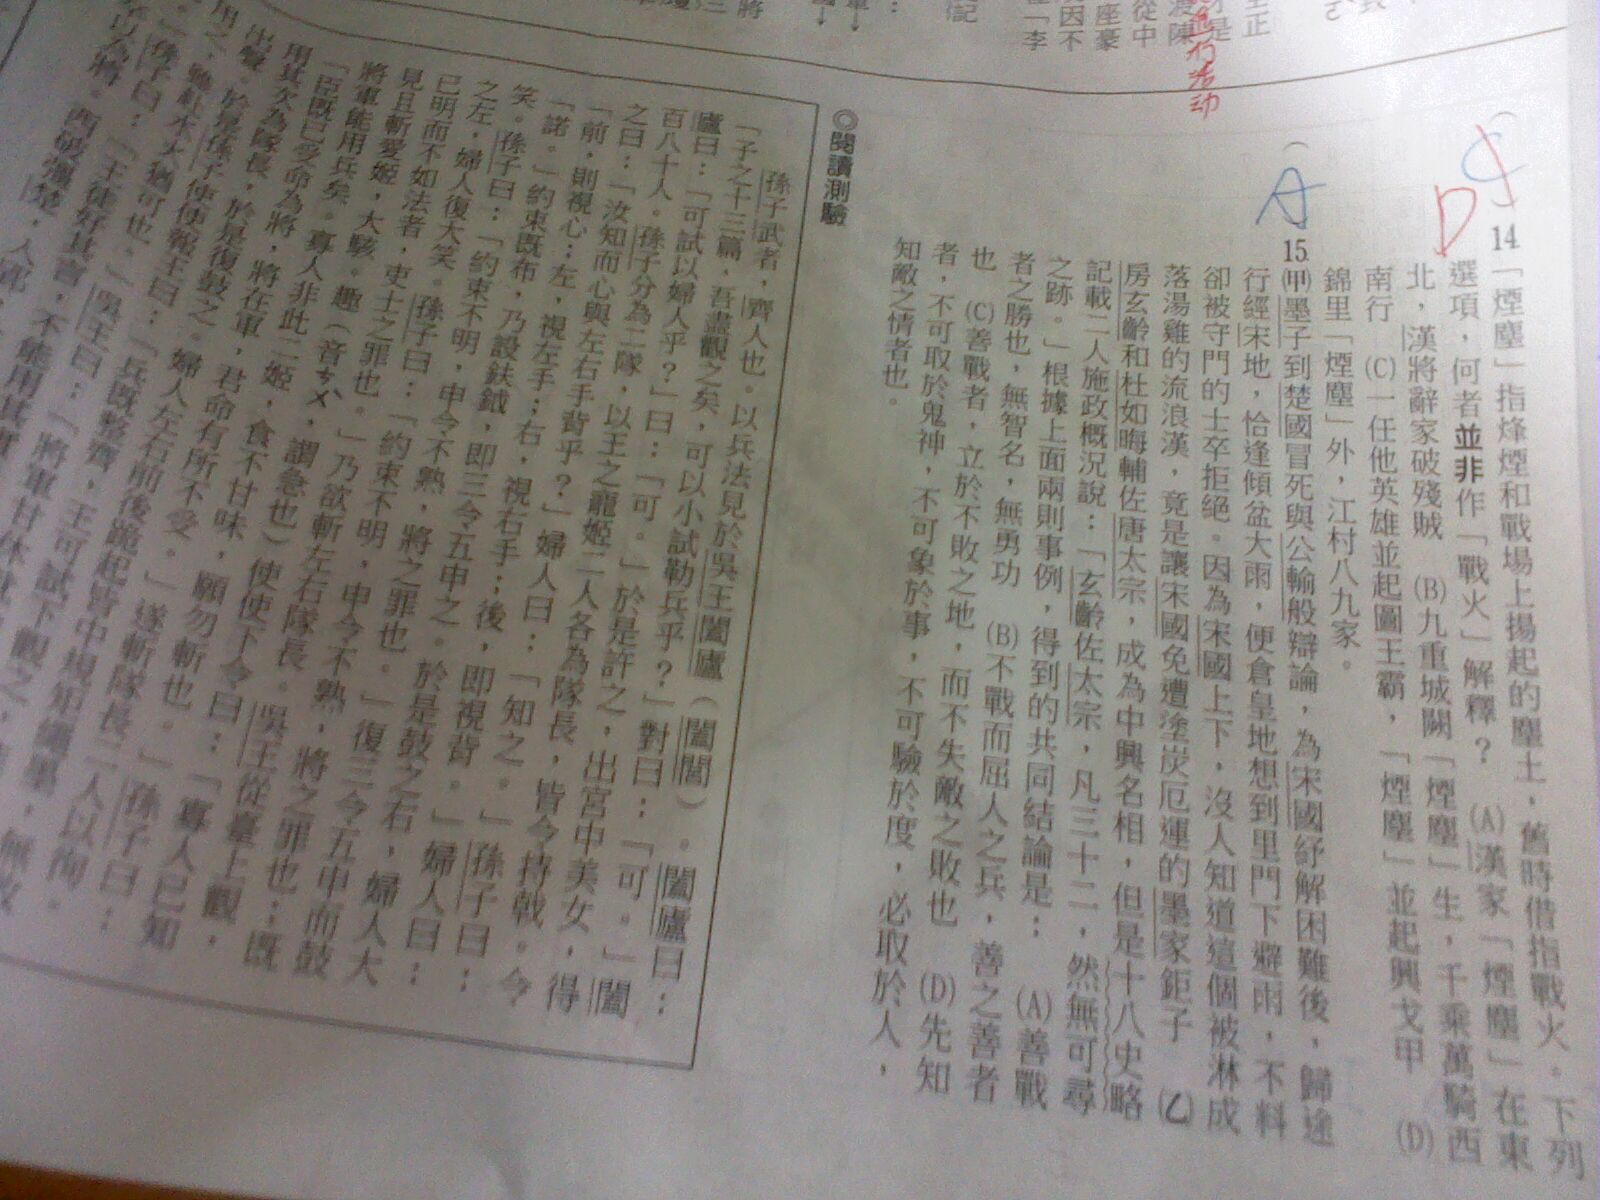 C
D
14.「煙塵」指烽煙和戰場上揚起的塵土，舊時借指戰火。下列
選項，何者並非作「戰火」解釋？　(A)漢家「煙塵」在東
北，漢將辭家破殘賊　(B)九重城闕「煙塵」生，千乘萬騎西
南行　(C)一任他英雄並起圖王霸，「煙塵」並起興戈甲　(D)
錦里「煙塵」外，江村八九家。
(
A
15.(甲)墨子到楚國冒死與公輸般辯論，為宋國紓解困難後，歸途
行經宋地，恰逢傾盆大雨，便倉皇地想到里門下避雨，不料
卻被守門的士卒拒絕。因為宋國上下，沒人知道這個被淋成
落湯雞的流浪漢，竟是讓宋國免遭塗炭厄運的墨家鉅子　(乙)
房玄齡和杜如晦輔佐唐太宗，成為中興名相，但是十八史略
記載二人施政概況說：「玄齡佐太宗，凡三十二，然無可尋
之跡。」根據上面兩則事例，得到的共同結論是：　(A)善戰
者之勝也，無智名，無勇功　(B)不戰而屈人之兵，善之善者
也　(C)善戰者，立於不敗之地，而不失敵之敗也　(D)先知
者，不可取於鬼神，不可象於事，不可驗於度，必取於人，
知敵之情者也。
◎閱讀測驗
孫子武者，齊人也。以兵法見於吳王闔廬（闔閭）。闔廬曰：
「子之十三篇，吾盡觀之矣，可以小試勒兵乎？」對曰：「可。」闔
廬曰：「可試以婦人乎？」曰：「可。」於是許之，出宮中美女，得
百八十人。孫子分為二隊，以王之寵姬二人各為隊長，皆令持戟。令
之曰：「汝知而心與左右手背乎？」婦人曰：「知之。」孫子曰：
「前，則視心；左，視左手；右，視右手；後，即視背。」婦人曰：
「諾。」約束既布，乃設鈇鉞，即三令五申之。於是鼓之右，婦人大
笑。孫子曰：「約束不明，申令不熟，將之罪也。」復三令五申而鼓
之左，婦人復大笑。孫子曰：「約束不明，申令不熟，將之罪也；既
已明而不如法者，吏士之罪也。」乃欲斬左右隊長。吳王從臺上觀，
見且斬愛姬，大駭。趣（音ㄘㄨˋ，謂急也）使使下令曰：「寡人已知
將軍能用兵矣。寡人非此二姬，食不甘味，願勿斬也。」孫子曰：
「臣既已受命為將，將在軍，君命有所不受。」遂斬隊長二人以徇。
用其次為隊長，於是復鼓之。婦人左右前後跪起皆中規矩繩墨，無敢
出聲。於是孫子使使報王曰：「兵既整齊，王可試下觀之，
用之，雖赴水火猶可也。」吳王曰：「將軍
孫子曰：「王徒好其言，不能用其實
以為將。西破彊楚，入郢，